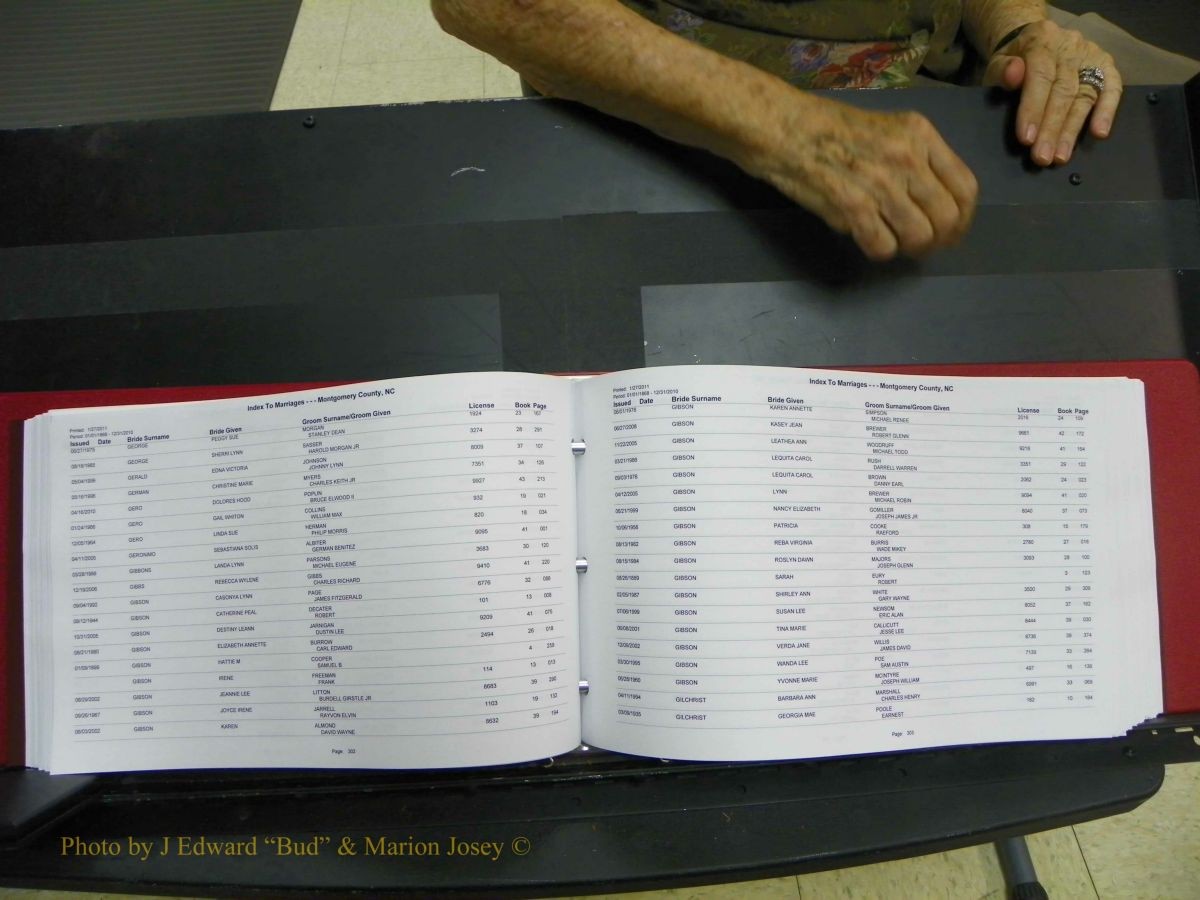 Index To Marriages - - - Montgomery County, NC
Printed: 1/27/2011
Period: 01/01/1868 - 12/31/2010
Issued Date Bride Surname Bride Given Groom Surname/Groom Given License Book Page
GEORGE PEGGY SUE MORGAN 1924 23 167
STANLEY DEAN
GEORGE SHERRI LYNN SASSER 3274 28 291
HAROLD MORGAN JR
GERALD EDNA VICTORIA JOHNSON 8009 37 107
JOHNNY LYNN
GERMAN CHRISTINE MARIE MYERS 7351 34 126
CHARLES KEITH JR
GERO DOLORES HOOD POPLIN 9927 43 213
BRUCE ELWOOD II
GERO GAIL WHITON COLLINS 932 19 021
WILLIAM MAX
GERO LINDA SUE HERMAN 820 18 034
PHILIP MORRIS
GERONIMO SEBASTIANA SOLIS ALBITER 9095 41 001
GERMAN BENITEZ
GIBBONS LANDA LYNN PARSONS 3683 30 120
MICHAEL EUGENE
GIBBS REBECCA WYLENE GIBBS 9410 41 220
CHARLES RICHARD
GIBSON CASONYA LYNN PAGE 6776 32 088
JAMES FITZGERALD
GIBSON CATHERINE PEAL DECATER 101 13 008
ROBERT
GIBSON DESTINY LEANN JARNIGAN 9209 41 075
DUSTIN LEE
GIBSON ELIZABETH ANNETTE BURROW 2494 26 018
CARL EDWARD
GIBSON HATTIE M COOPER 4 259
SAMUEL B
GIBSON IRENE FREEMAN 114 13 013
FRANK
08/29/2002 GIBSON JEANNIE LEE LITTON 8683 39 290
BURDELL GIRSTLE JR
09/26/1967 GIBSON JOYCE IRENE JARRELL 1103 19 132
RAYVON ELVIN
08/03/2002 GIBSON KAREN ALMOND 8632 39 194
DAVID WAYNE
Page: 302
Index To Marriages - - - Montgomery County, NC
Printed: 1/27/2011
Period: 01/01/1868 - 12/31/2010
Issued Date Bride Surname Bride Given Groom Surname/Groom Given License Book Page
GIBSON KAREN ANNETTE SIMPSON 2016 24
MICHAEL RENEE
GIBSON KASEY JEAN BREWER 9661 42 172
ROBERT GLENN
11/22/2005 GIBSON LEATHEA ANN WOODRUFF 9216 41 154
MICHAEL TODD
03/21/1986 GIBSON LEQUITA CAROL RUSH 3351 29 122
DARRELL WARREN
09/03/1976 GIBSON LEQUITA CAROL BROWN 2062 24 023
DANNY EARL
04/12/2005 GIBSON LYNN BREWER 9094 41 020
MICHAEL ROBIN
GIBSON NANCY ELIZABETH GOMILLER 8040 37 073
JOSEPH JAMES JR
GIBSON PATRICIA COOKE 308 15 179
RAEFORD
08/13/1982 GIBSON REBA VIRGINIA BURRIS 2780 27 016
WADE MIKEY
08/15/1984 GIBSON ROSLYN DAWN MAJORS 3093 28 100
JOSEPH GLENN
GIBSON SARAH EURY 3 123
ROBERT
02/05/1987 GIBSON SHIRLEY ANN WHITE 3500 29 309
GARY WAYNE
GIBSON SUSAN LEE NEWSOM 8052 37 162
ERIC ALAN
GIBSON TINA MARIE CALLICUTT 8444 39 030
JESSE LEE
GIBSON VERDA JANE WILLIS 8736 39 374
JAMES DAVID
GIBSON WANDA LEE POE 7139 33 394
SAM AUSTIN
GIBSON YVONNE MARIE MCINTYRE 497 16 136
JOSEPH WILLIAM
04/11/1994 GILCHRIST BARBARA ANN MARSHALL 6991 33 069
CHARLES HENRY
03/09/1935 GILCHRIST GEORGIA MAE POOLE 182 10 164
EARNEST
Page: 303
Photo by J Edward “Bud” & Marion Josey ©